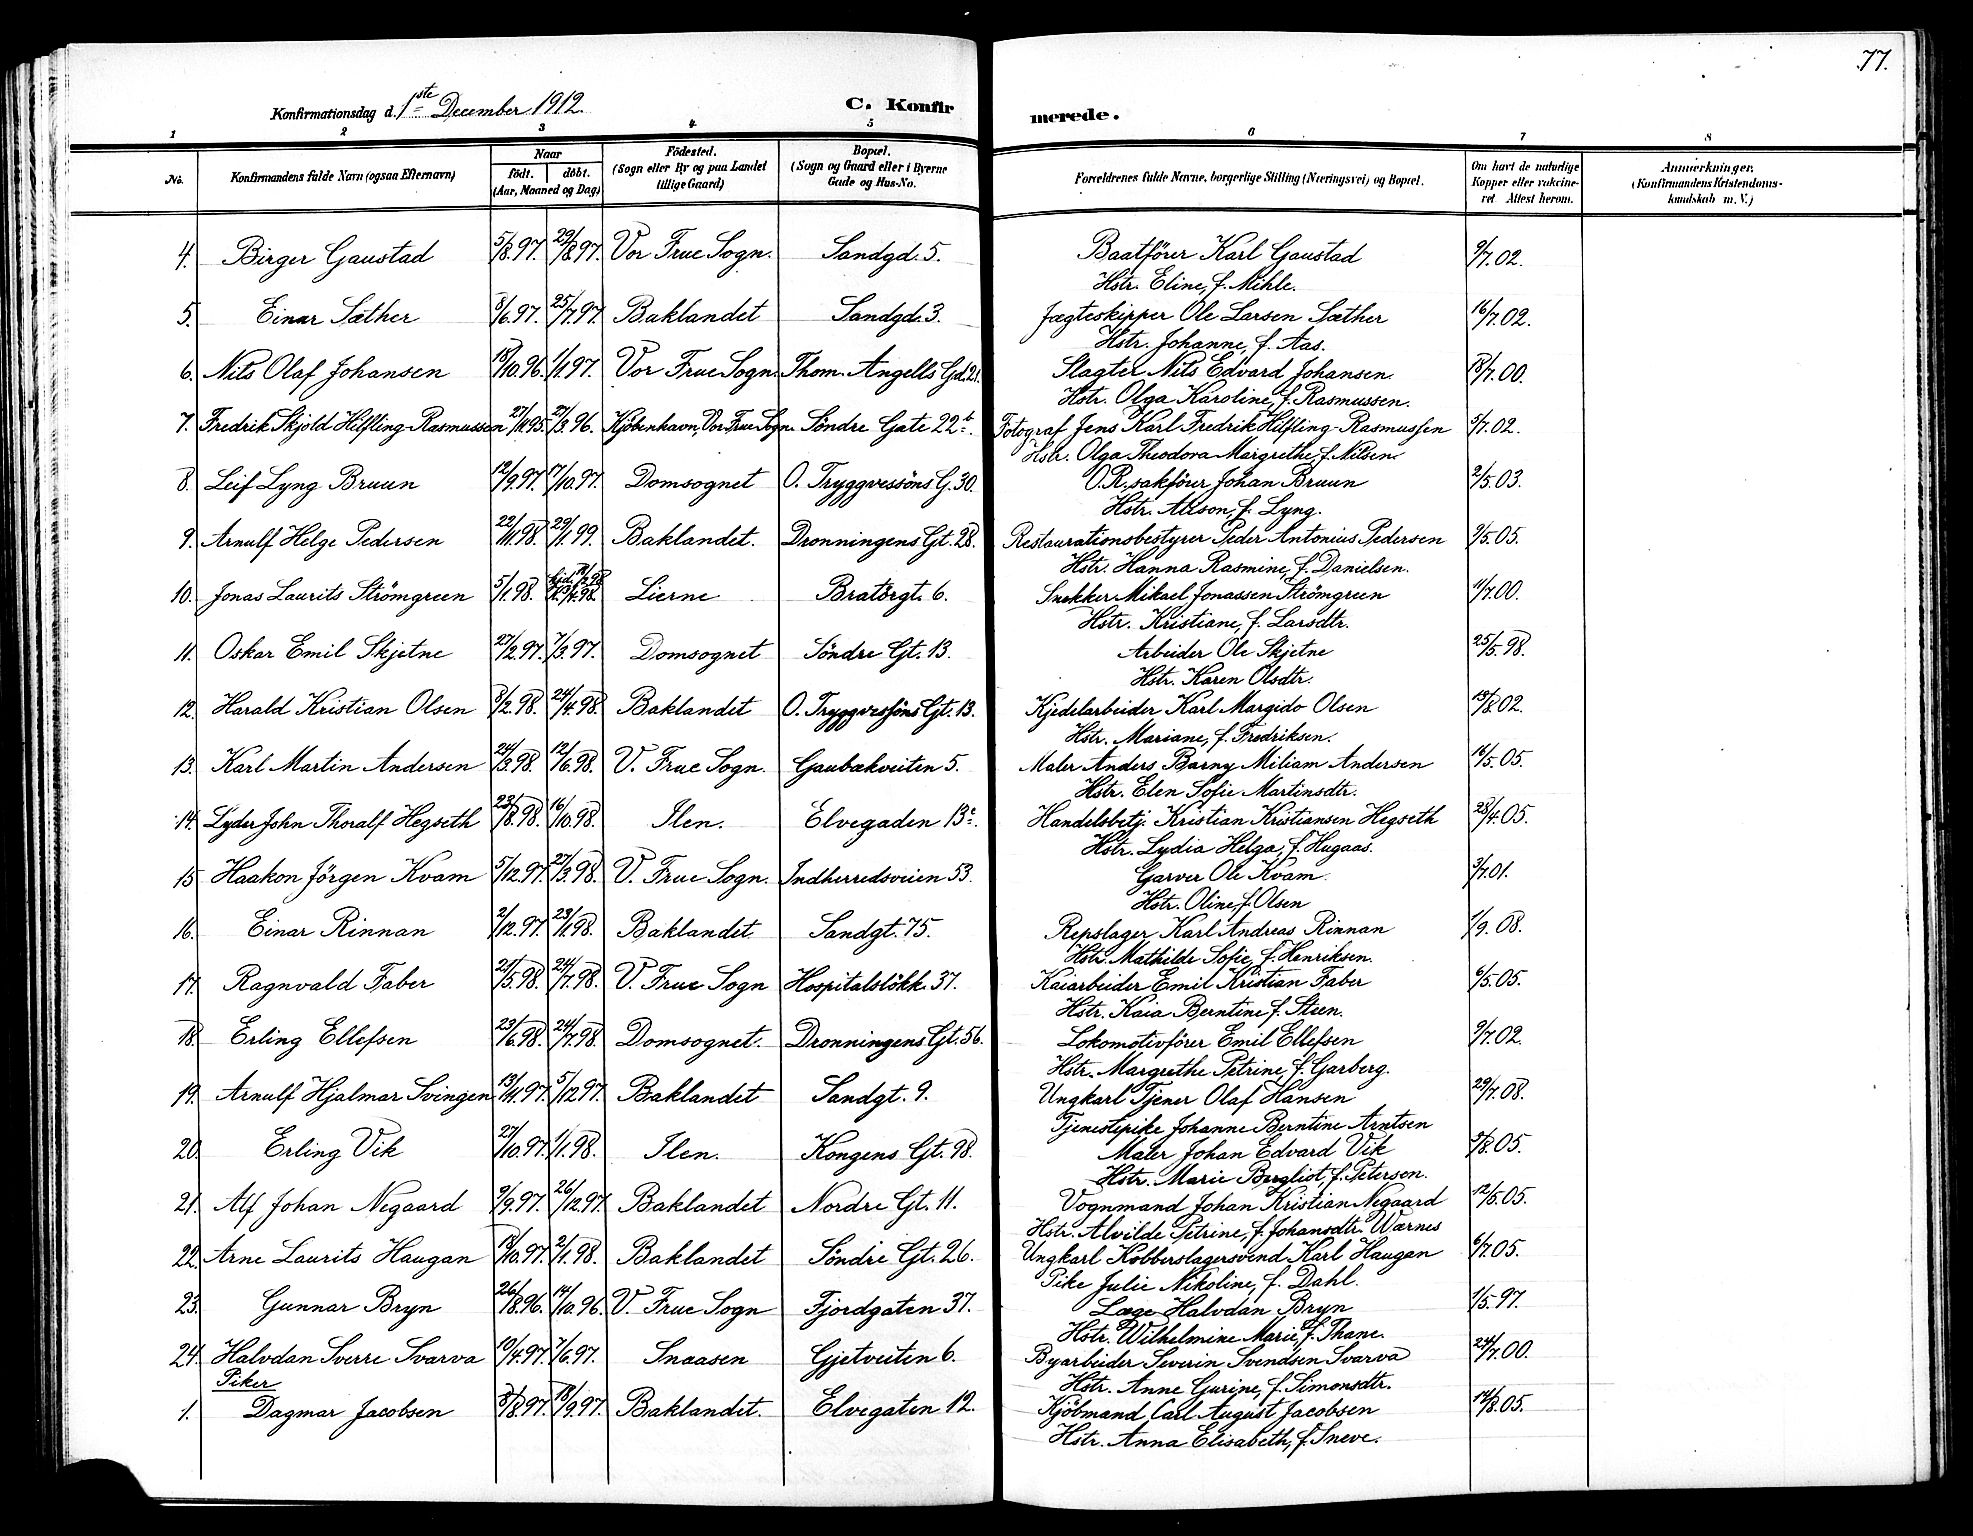 77.
Konfirmationsdag d. 1ste December 1912.
C. Konfirmerede.
1 2 3 4 5 6 7 8
No. Konfirmandens fulde Navn (ogsaa Efternavn) Naar födt. döbt. (Aar, Maaned og Dag) Födested. (Sogn eller By og paa Landet tillige Gaard) Bopæl. (Sogn og Gaard eller i Byerne Gade og Hus-No. Forældrenes fulde Navne, borgerlige Stilling (Næringsvei) og Bopæl. Om havt de naturlige Kopper eller vakcineret Attest herom. Anmerkninger. (Konfirmandens Kristendomskundskab m. V.)
4. Birger Gaustad 5/8.97. 29/8.97. Vor Frue Sogn. Sandgd. 5. Baatförer Karl Gaustad 9/7.02.
Hstr. Eline, f. Mihle.
5. Einar Sæther 8/6.97. 25/7.97. Baklandet Sandgd. 3. Jægteskipper Ole Larsen Sæther 16/7.02.
Hstr. Johanne, f. Aas.
6. Nils Olaf Johansen 18/10.96. 1/1.97. Vor Frue Sogn. Thom. Angells Gd. 21. Slagter Nils Edvard Johansen 18/7.00.
Hstr. Olga Karoline, f. Rasmussen.
7. Fredrik Skjold Hilfling-Rasmussen 27/11.95. 27/3.96. Kjöbenhavn, Vor Frue Sogn. Söndre Gate 22b. Fotograf Jens Karl Fredrik Hilfling-Rasmussen 5/7.02.
Hstr. Olga Theodora Margrethe, f. Nilsen.
8. Leif Lyng Bruun 12/9.97. 17/10.97. Domsognet O. Tryggvessöns G. 30. O.R.sakförer Johan Bruun 2/5.03.
Hstr. f. Lyng.
9. Arnulf Helge Pedersen 22/11.98. 29/1.99. Baklandet. Dronningens Gt. 28. Restaurationsbestyrer Peder Antonius Pedersen 9/5.05.
Hstr. Hanna Rasmine, f. Danielsen.
10. Jonas Laurits Strömgreen 5/1.98. Lierne Bratörgt. 6. Snekker Mikael Jonassen Strömgreen 11/7.00.
Hstr. Kristiane, f. Larsdtr.
11. Oskar Emil Skjetne 27/2.97. 7/3.97. Domsognet Söndre Gt. 13. Arbeider Ole Skjetne 25/5.98.
Hstr. Karen Olsdtr.
12. Harald Kristian Olsen 8/2.98. 24/4.98. Baklandet O. Tryggvessöns Gt. 13. Kjedelarbeider Karl Margido Olsen 13/8.02.
Hstr. Mariane, f. Fredriksen.
13. Karl Martin Andersen 24/3.98. 12/6.98. V. Frue Sogn. Gaubækveiten 5. Maler Anders Barny Miliam Andersen 16/5.05.
Hstr. Elen Sofie Martinsdtr.
14. Lyder John Thoralf Hegseth 23/8.98. 16/10.98. Ilen. Elvegaden 13c. Handelsbetj. Kristian Kristiansen Hegseth 28/4.05.
Hstr. Lydia Helga, f. Hugaas.
15 Haakon Jörgen Kvam 5/12.97. 27/3.98. V. Frue Sogn. Indherredsveien 53. Garver Ole Kvam. 3/7.01.
Hstr. Oline, f. Olsen
16. Einar Rinnan 2/12.97. 23/1.98. Baklandet. Sandgt. 75. Repslager Karl Andreas Rinnan 1/9.08.
Hstr. Mathilde Sofie, f. Henriksen.
17. Ragnvald Faber 21/5.98. 24/7.98. V. Frue Sogn Hospitalslökk. 37. Kaiarbeider Emil Kristian Faber 6/5.05.
Hstr. Kaia Berntine f. Steen.
18. Erling Ellefsen 23/6.98. 24/7.98. Domsognet. Dronningens Gt. 56. Lokomotivförer Emil Ellefsen 9/7.02.
Hstr. Margrethe Petrine, f. Garberg.
19. Arnulf Hjalmar Svingen 13/11.97. 5/12.97. Baklandet Sandgt. 9. Ungkarl Tjener Olaf Hansen 29/7.08.
Tjenestepike Johanne Berntine Arntsen
20. Erling Vik 27/10.97. 1/1.98. Ilen. Kongens Gt. 98. Maler Johan Edvard Vik 3/8.05.
Hstr. Marie Bergliot, f. Petersen.
21. Alf Johan Negaard 9/9.97. 26/12.97. Baklandet Nordre Gt. 11. Vognmand Johan Kristian Negaard 12/5.05.
Hstr. Alvilde Petrine, f. Johansdtr. Værnes
22. Arne Laurits Haugan 18/10.97. 2/1.98. Baklandet Söndre Gt. 26. Ungkarl Kobberslagersvend Karl Haugan 6/7.05.
Pike Julie Nikoline, f. Dahl.
23. Gunnar Bryn 26/8.96. 14/10.96. V. Frue Sogn Fjordgaten 37. Læge Halvdan Bryn 1/5.97.
Hstr. Wilhelmine Marie, f. Thane.
24. Halvdan Sverre Svarva 10/4.97. 7/6.97. Snaasen Gjetveiten 6. Byarbeider Severin Svendsen Svarva 24/7.00.
Hstr. Anne Gurine, f. Simonsdtr.
Piker
1. Dagmar Jacobsen 3/8.97. 18/9.97. Baklandet. Elvegaten 12. Kjöbmand Carl August Jacobsen 14/8.05.
Hstr. Anna Elisabeth, f. Sneve.